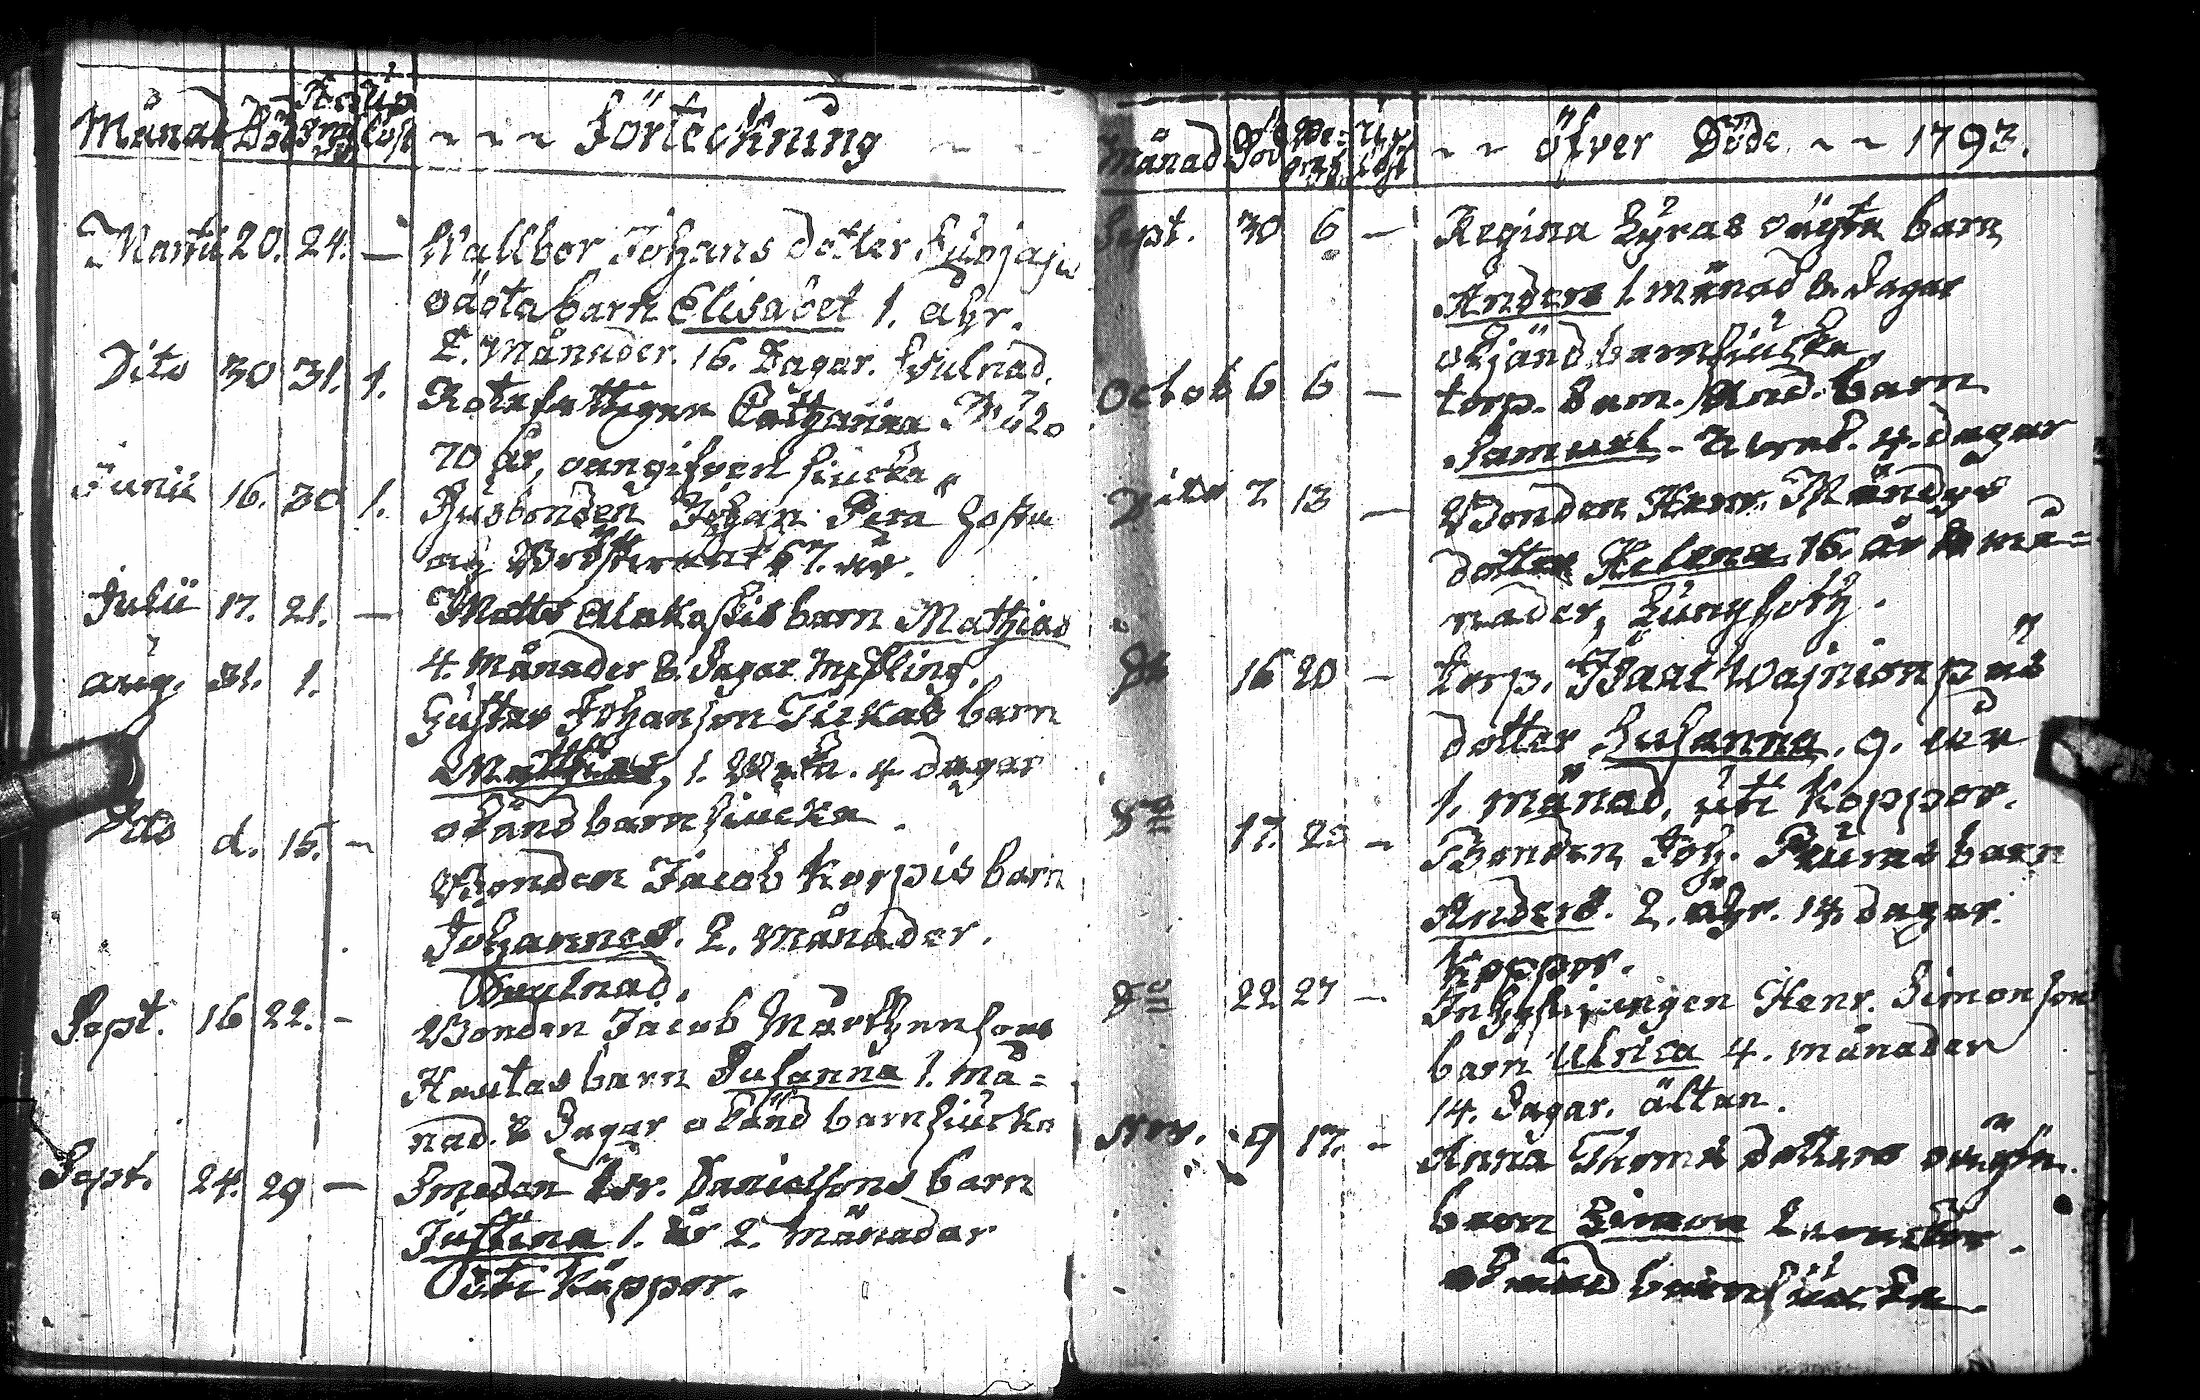 Månad Död Begr. Utj. köst Förteckning
Martii 20. 24. — Wallbor Johans dotter
oäcta barn Elisabet 1. åhr.
2. Månader. 16. Dagar. Svulnad.
Dito 30 31. 1. Rotefattigen Catharina
70 år, oangifven siucka
Junii 16. 30 1. Husbonden Johan Pera hostru
67. år.
Julii 17. 21. — Matts barn Mathias
4. Månader 8. Dagar Meßling.
aug. 31. 1. Gustav Johanson barn
Matthias, 1. Weck. 4 dagar
okänd barnsiucka.
Dito d. 15. — Bonden Jacob Korpis barn
Johannes. 2. Månader.
Svulnad.
Sept. 16 22. — Bonden Jacob Markhensons
Hautas barn Susanna 1. må=
nad. 8 Dagar okänd barnsiucka
Sept. 24. 29 — Smeden Danielsons barn
Justina 1. år 2. månadar
Uti Köppor.
Månad Död Begr. Utj. köst öfver Döde 1793.
Sept. 30 6 — Regina oägta barn
Anders 1. månad 8. Dagar
okjänd barnsiucka
Octob 6 6 — torp. Sam. And. barn
Samuel - 4. dagar
Dito 7 13 — Bonden Henr.
dotter Helena 16. år må=
nader, Lungsoth.
Do 16 20 — torp. Isaac Wajnionpäs
dotter Susanna. 9. år
1. månad, uti Koppor.
Do 17. 20 — Bonden Joh. barn
Anders. 2. åhr. 14 dagar.
Koppor.
Do 22 27 — Inhysingen Henr. Simonson
barn Ulrica 4. månader
14. Dagar. ältan.
Nov. 9 17. — Anna Thoms dotters oägta
barn Simon 2
okänd barnsiucka.